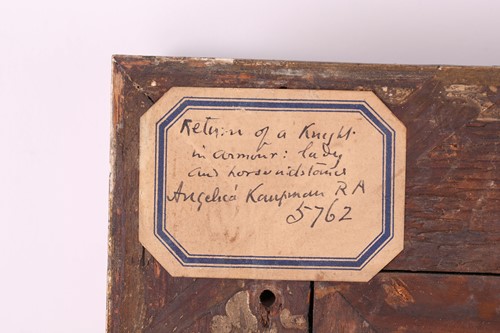 Return of a Knight
in armour: lady
and horse
Angelica Kaufman RA
5762